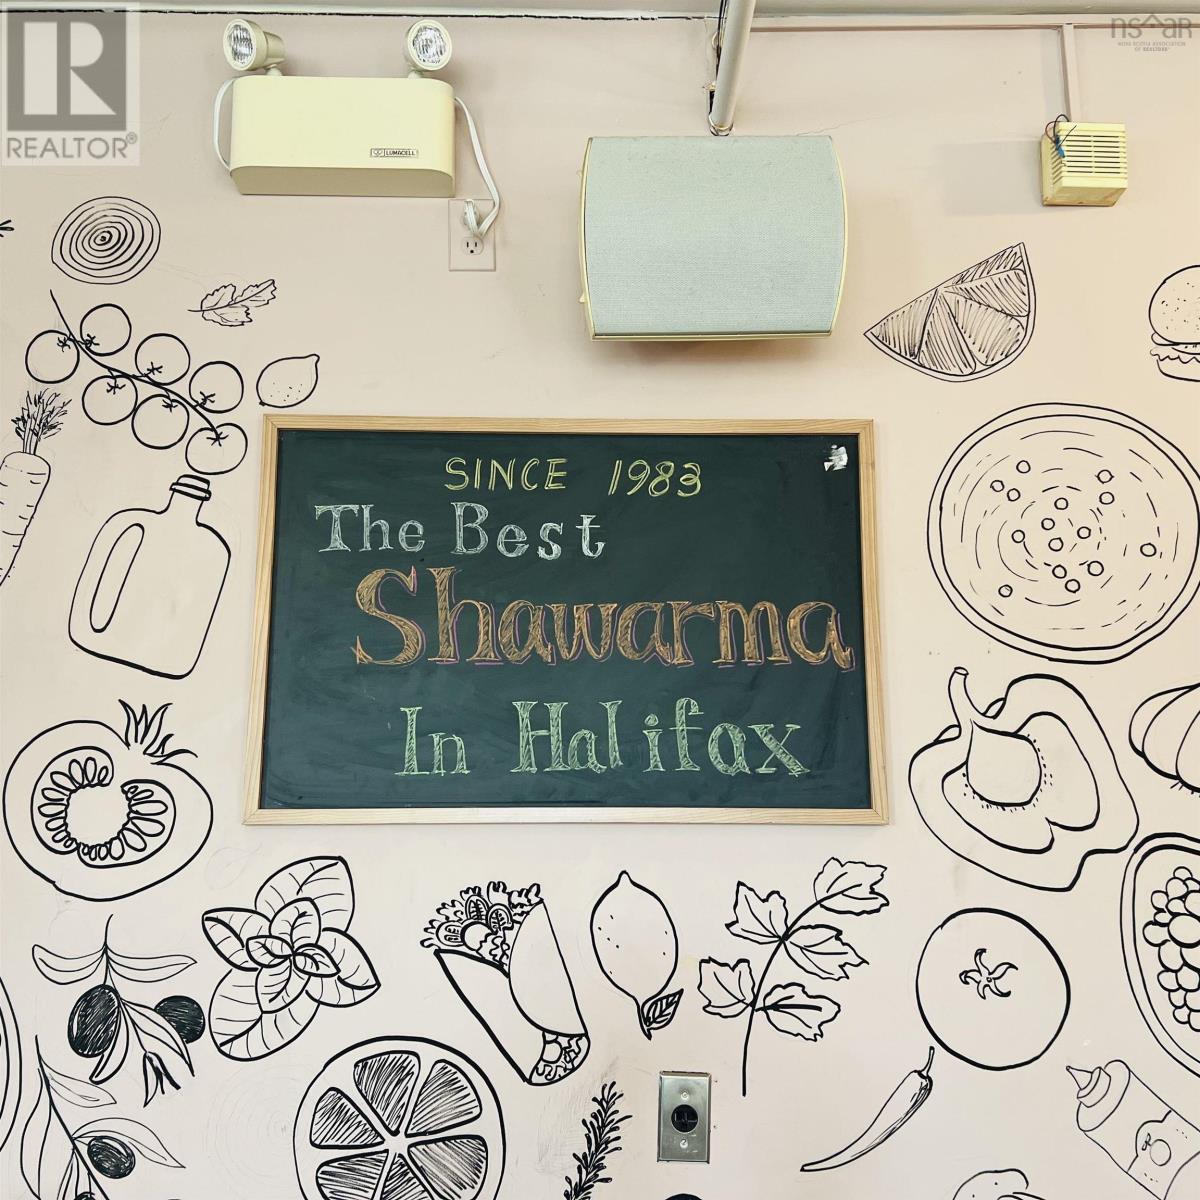 REALTOR®
nsar
NOVA SCOTIA ASSOCIATION
OF REALTORS®
LUMACELL
SINCE 1983
The Best
Shawarma
In Halifax